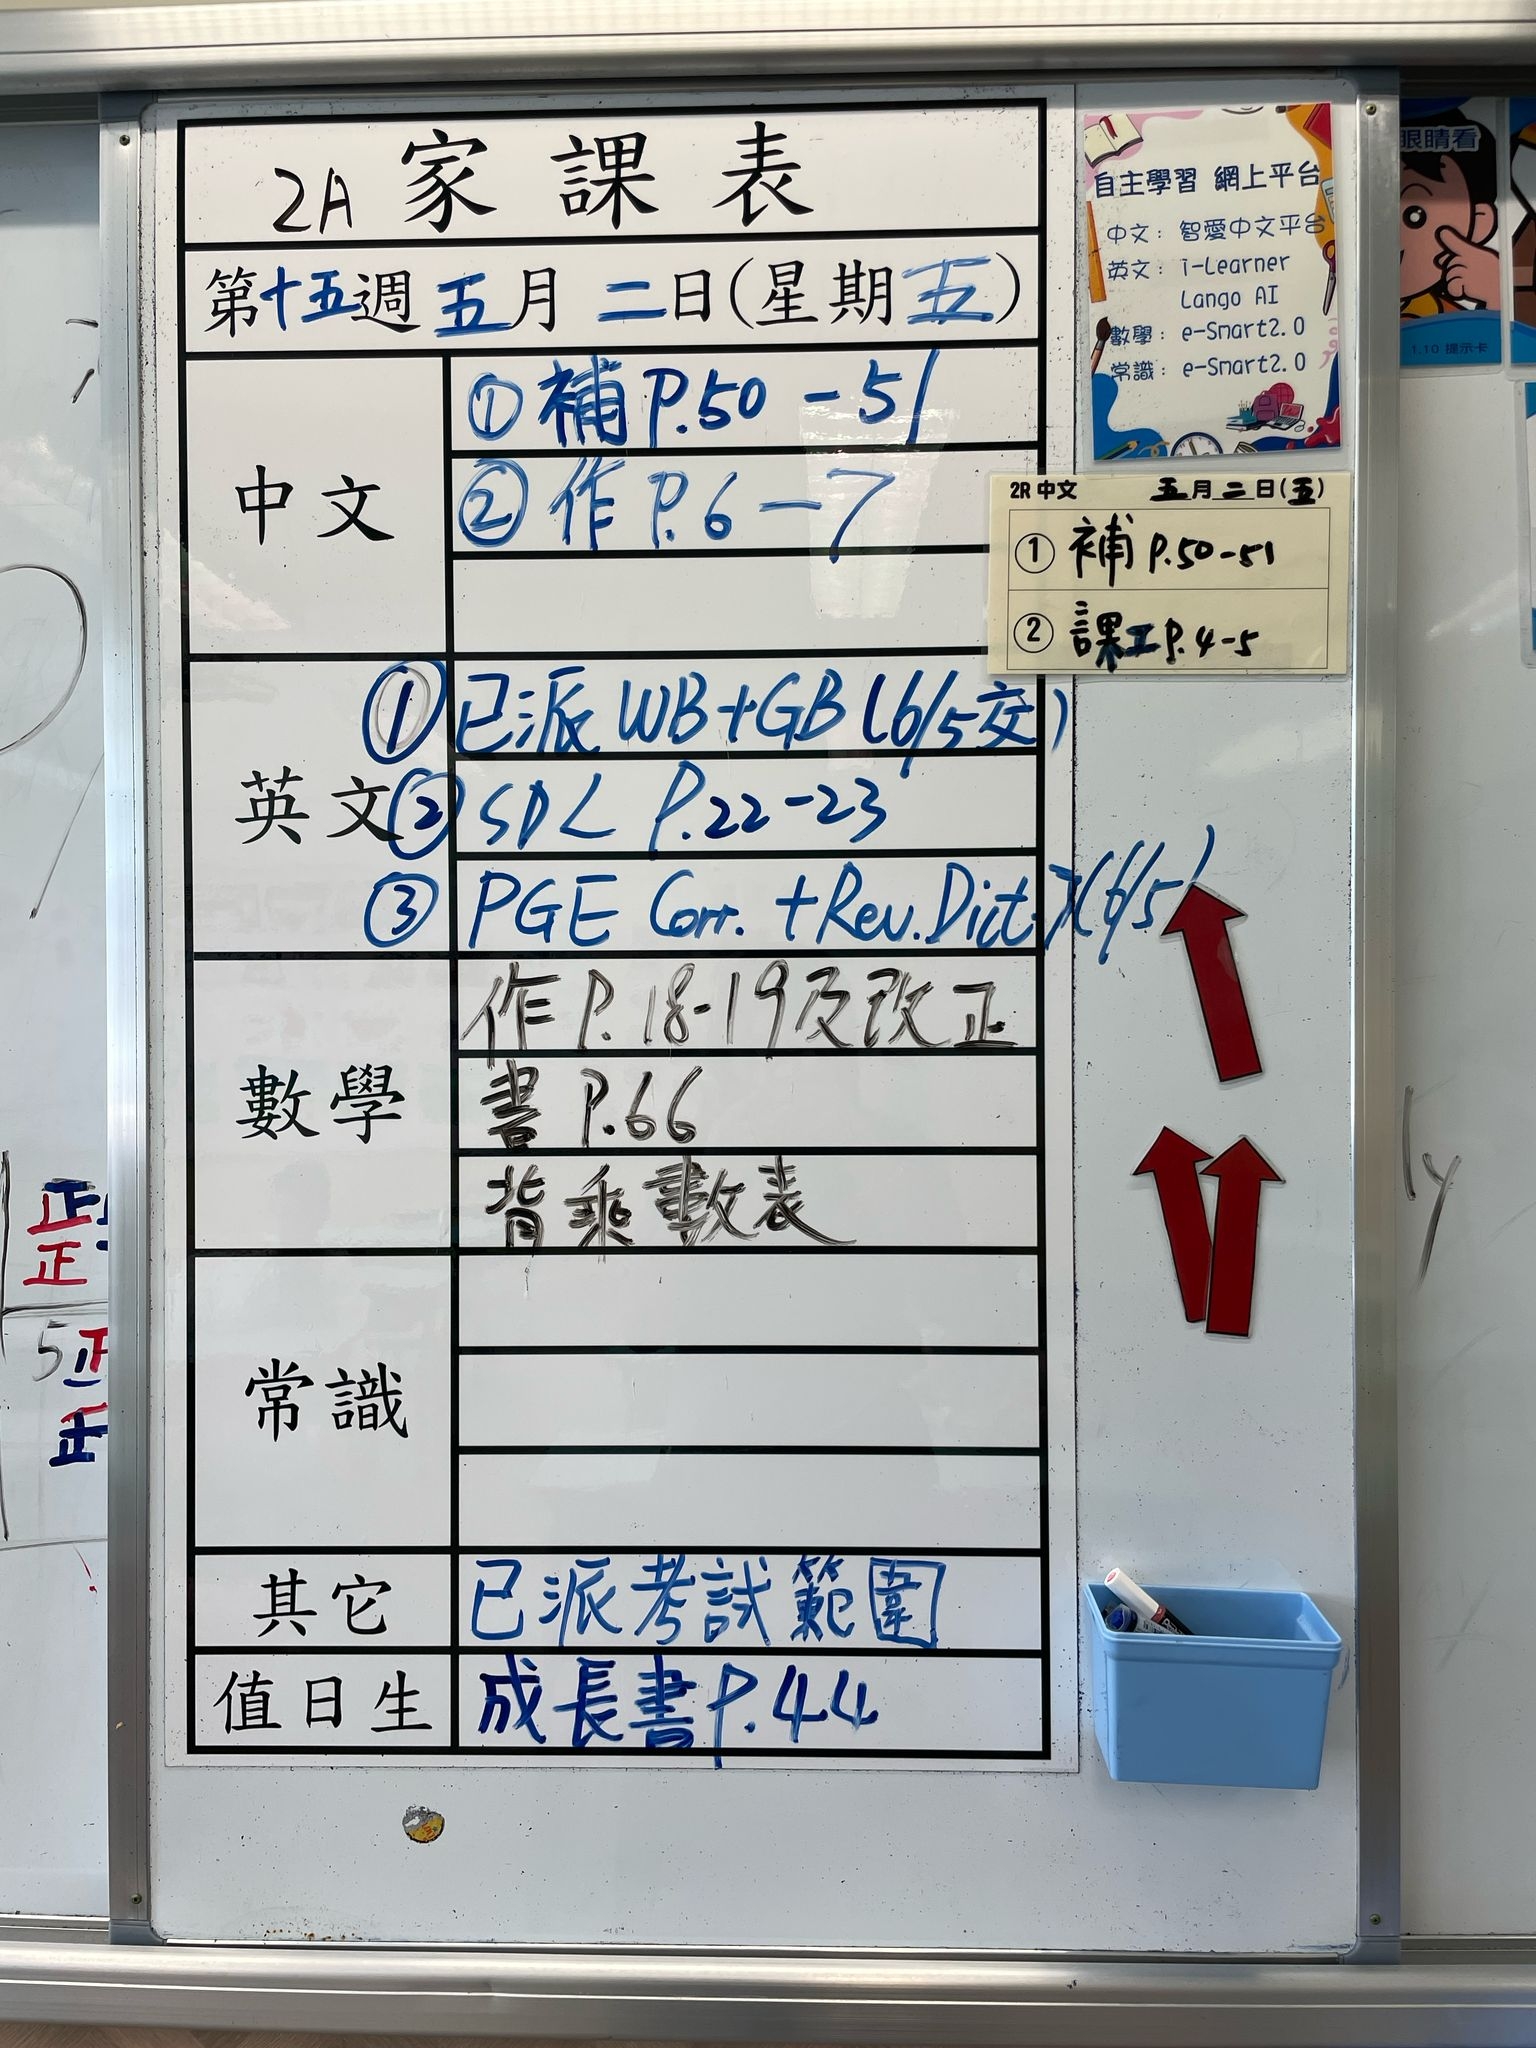 2A 家課表
第十五週 五月 二日(星期五)
中文
①補 P.50-51
②作 P.6-7
英文
①已派 WB+GB (6/5交)
②SDL P.22-23
③PGE Corr. +Rev.Dict. (6/5)
數學
作 P.18-19及改正
書 P.66
背乘數表
常識
其它
已派考試範圍
值日生
成長書 P.44
自主學習 網上平台
中文：智愛中文平台
英文：i-Learner
Lango AI
數學：e-Smart2.0
常識：e-Smart2.0
2R 中文 五月二日(五)
① 補 P.50-51
② 課工 P.4-5
眼睛看
1.10 提示卡
正
正
5正
正